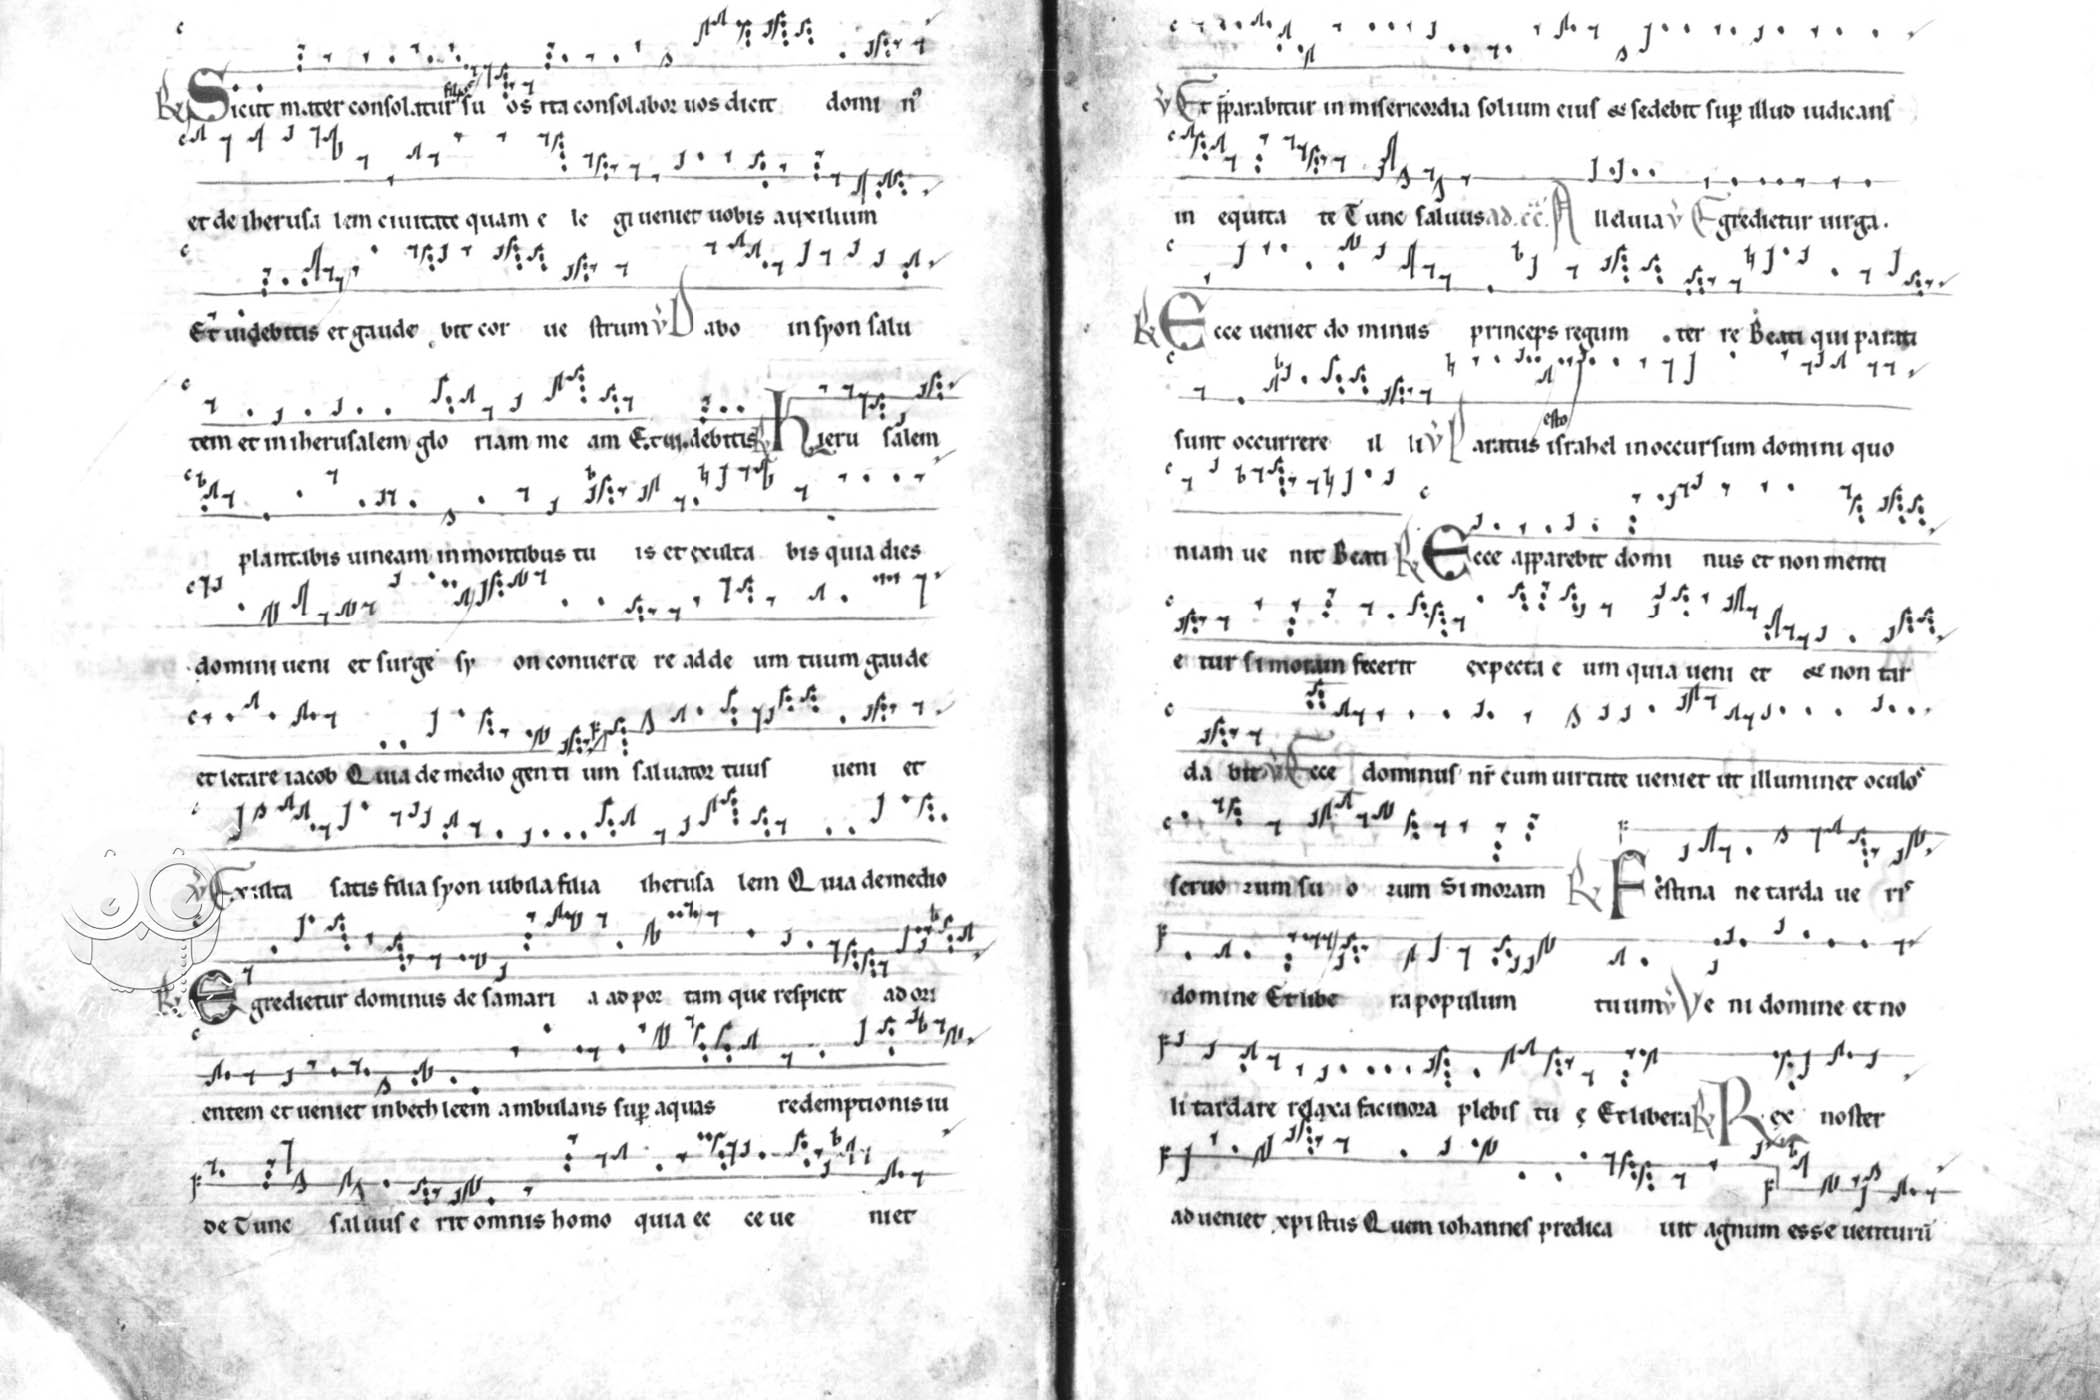 ℟ Sicut mater consolatur filios su os ita consolabor uos dicit domi n᷒
et de iherusa lem ciuitate quam e le gi ueniet uobis auxilium
Et uidebitis et gaude bit cor ue strum ℣ Dabo in syon salu
tem et in iherusalem glo riam me am Et uidebitis ℟ Hieru salem
plantabis uineam in montibus tu is et exulta bis quia dies
domini ueni et surge sy on conuerte re ad de um tuum gaude
et letare iacob Quia de medio genti um saluator tuus ueni et
℣ Exulta satis filia syon iubila filia iherusa lem Quia de medio
℟ Egredietur dominus de samari a ad por tam que respicit ad ori
entem et ueniet in bethleem ambulans sup aquas redemptionis iu
de Tunc saluus e rit omnis homo quia ec ce ue niet
℣ Et pparabitur in misericordia solium eius & sedebit sup illud iudicans
in equita te Tunc saluus ad. cc̄. Alleluia ℣ Egredietur uirga.
℟ Ecce ueniet do minus princeps regum ter re Beati qui parati
sunt occurrere il li ℣ Paratus esto israhel in occursum domini quo
niam ue nit Beati ℟ Ecce apparebit domi nus et non menti
e tur si moram fecerit expecta e um quia ueni et & non tar
da bit ℣ Ecce dominus nr̄ cum uirtute ueniet ut illuminet oculos
seruo rum su o rum Si moram ℟ Festina ne tarda ue ris
domine Et libe ra populum tuum ℣ Ve ni domine et no
li tardare relaxa facinora plebis tu ę Et libera ℟ Rex noster
adueniet xpistus Quem iohannes predica uit agnum esse uenturū